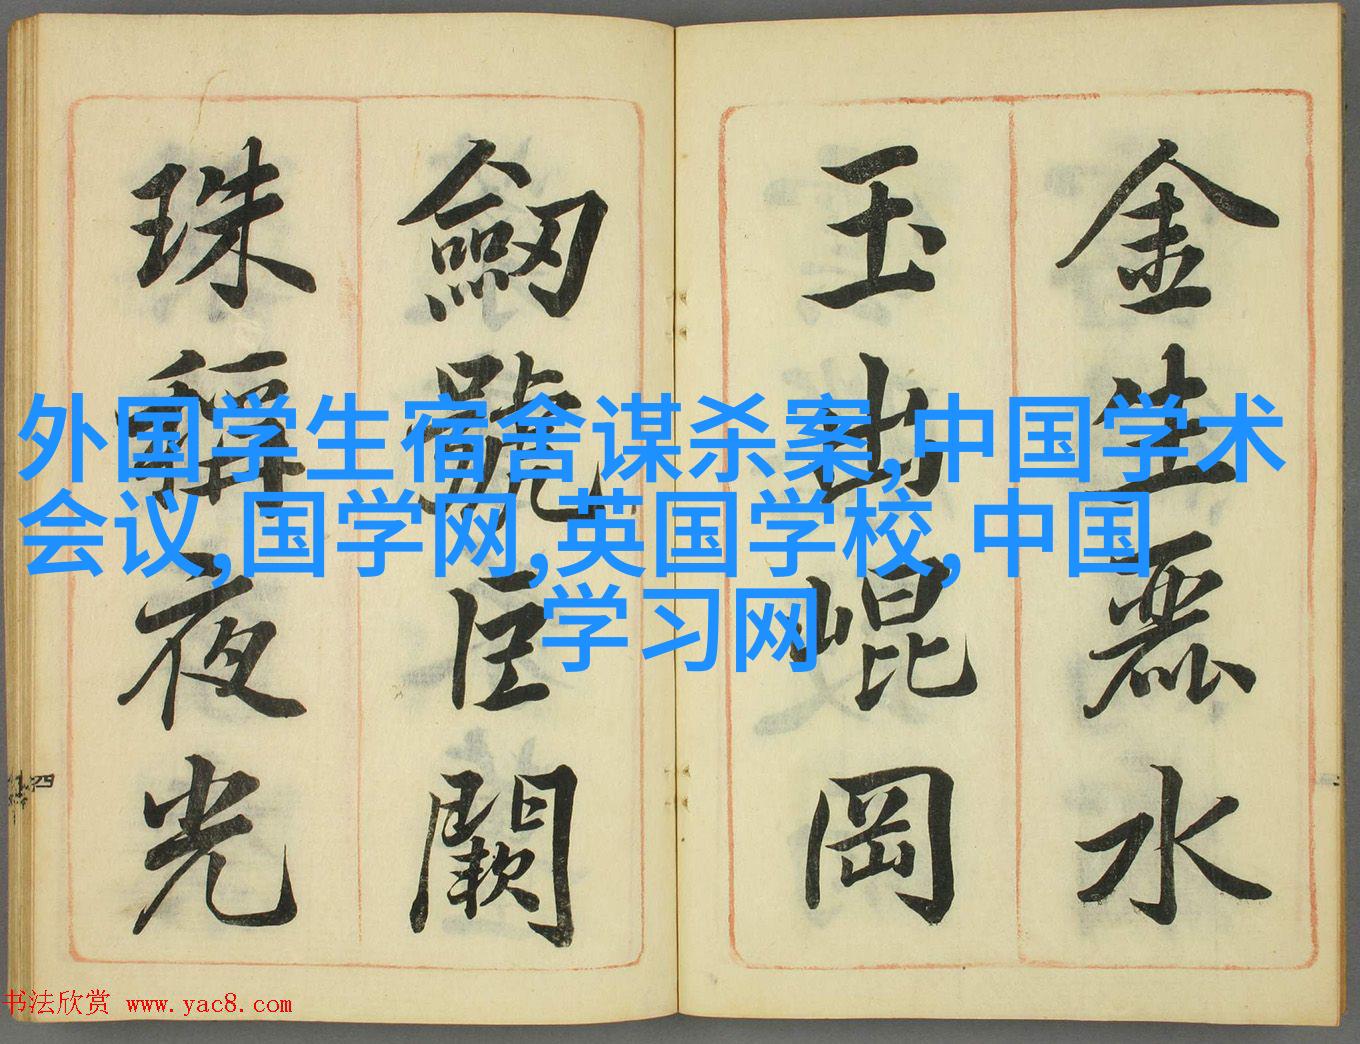 金生麗水
玉出崐岡
劒號巨闕
珠稱夜光
外国学生宿舍谋杀案,中国学术
会议,国学网,英国学校,中国
学习网
四
书法欣赏 www.yac8.com